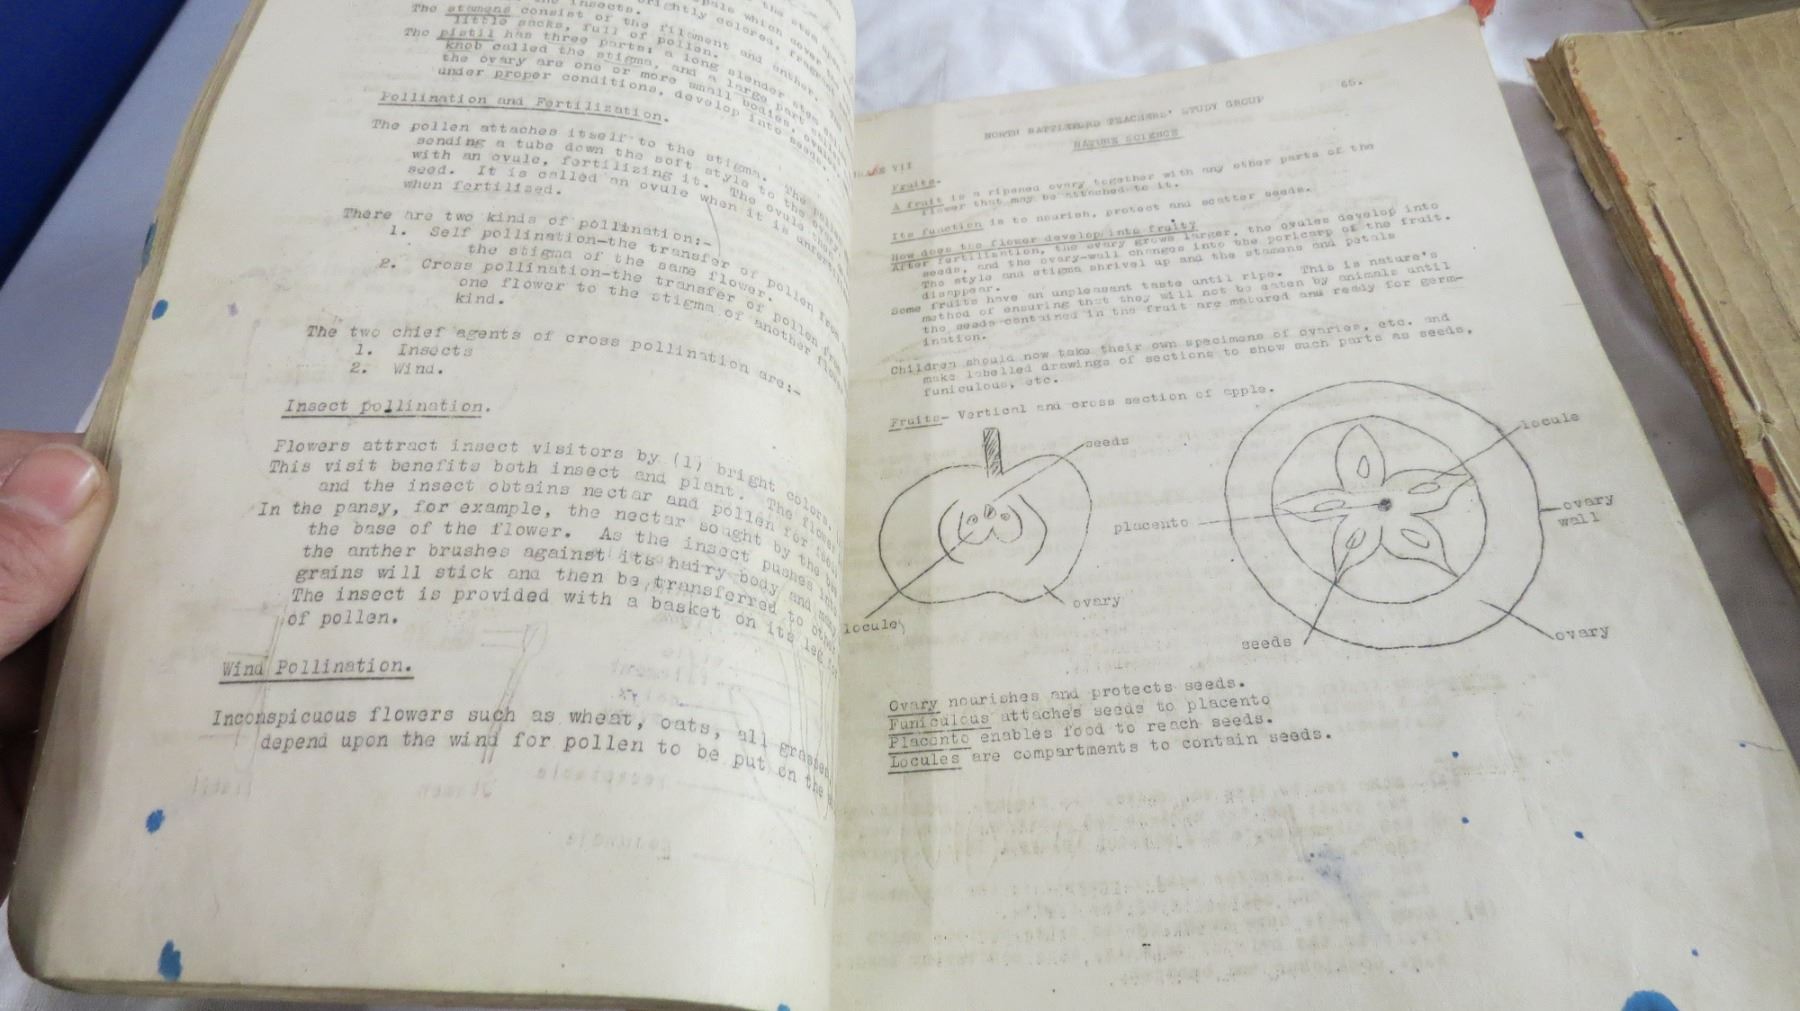 the insects.
The stamens consist of the filament and anther.
little sacks, full of pollen.
The pistil has three parts: a long slender stem
knob called the stigma, and a large part
the ovary are one or more small bodies,
under proper conditions, develop into seeds.
Pollination and Fertilization.
The pollen attaches itself to the stigma. The
sending a tube down the soft style to the
with an ovule, fertilizing it. The ovule
seed. It is called an ovule when it is
when fertilized.
There are two kinds of pollination:-
1. Self pollination-the transfer of pollen from
the stigma of the same flower.
2. Cross pollination-the transfer of pollen from
one flower to the stigma of another flower
kind.
The two chief agents of cross pollination are:-
1. Insects
2. Wind.
Insect pollination.
Flowers attract insect visitors by (1) bright colors.
This visit benefits both insect and plant. The flower
and the insect obtains nectar and pollen for
In the pansy, for example, the nectar sought by the
the base of the flower. As the insect pushes into
the anther brushes against its hairy body and many
grains will stick and then be transferred to other
The insect is provided with a basket on its leg for
of pollen.
Wind Pollination.
Inconspicuous flowers such as wheat, oats, all grasses
depend upon the wind for pollen to be put on the
65.
NORTH BATTLEFORD TEACHERS' STUDY GROUP
NATURE SCIENCE
VII
Fruits.
A fruit is a ripened ovary together with any other parts of the
flower that may be attached to it.
Its function is to nourish, protect and scatter seeds.
How does the flower develop into fruit?
After fertilization, the ovary grows larger, the ovules develop into
seeds, and the ovary-wall changes into the pericarp of the fruit.
The style and stigma shrivel up and the stamens and petals
disappear.
Some fruits have an unpleasant taste until ripe. This is nature's
method of ensuring that they will not be eaten by animals until
the seeds contained in the fruit are matured and ready for germ-
ination.
Children should now take their own specimens of ovaries, etc. and
make labelled drawings of sections to show such parts as seeds,
funiculous, etc.
Fruits- Vertical and cross section of apple.
seeds
locule
placento
ovary
wall
ovary
locule
seeds
ovary
Ovary nourishes and protects seeds.
Funiculous attaches seeds to placento
Placento enables food to reach seeds.
Locules are compartments to contain seeds.